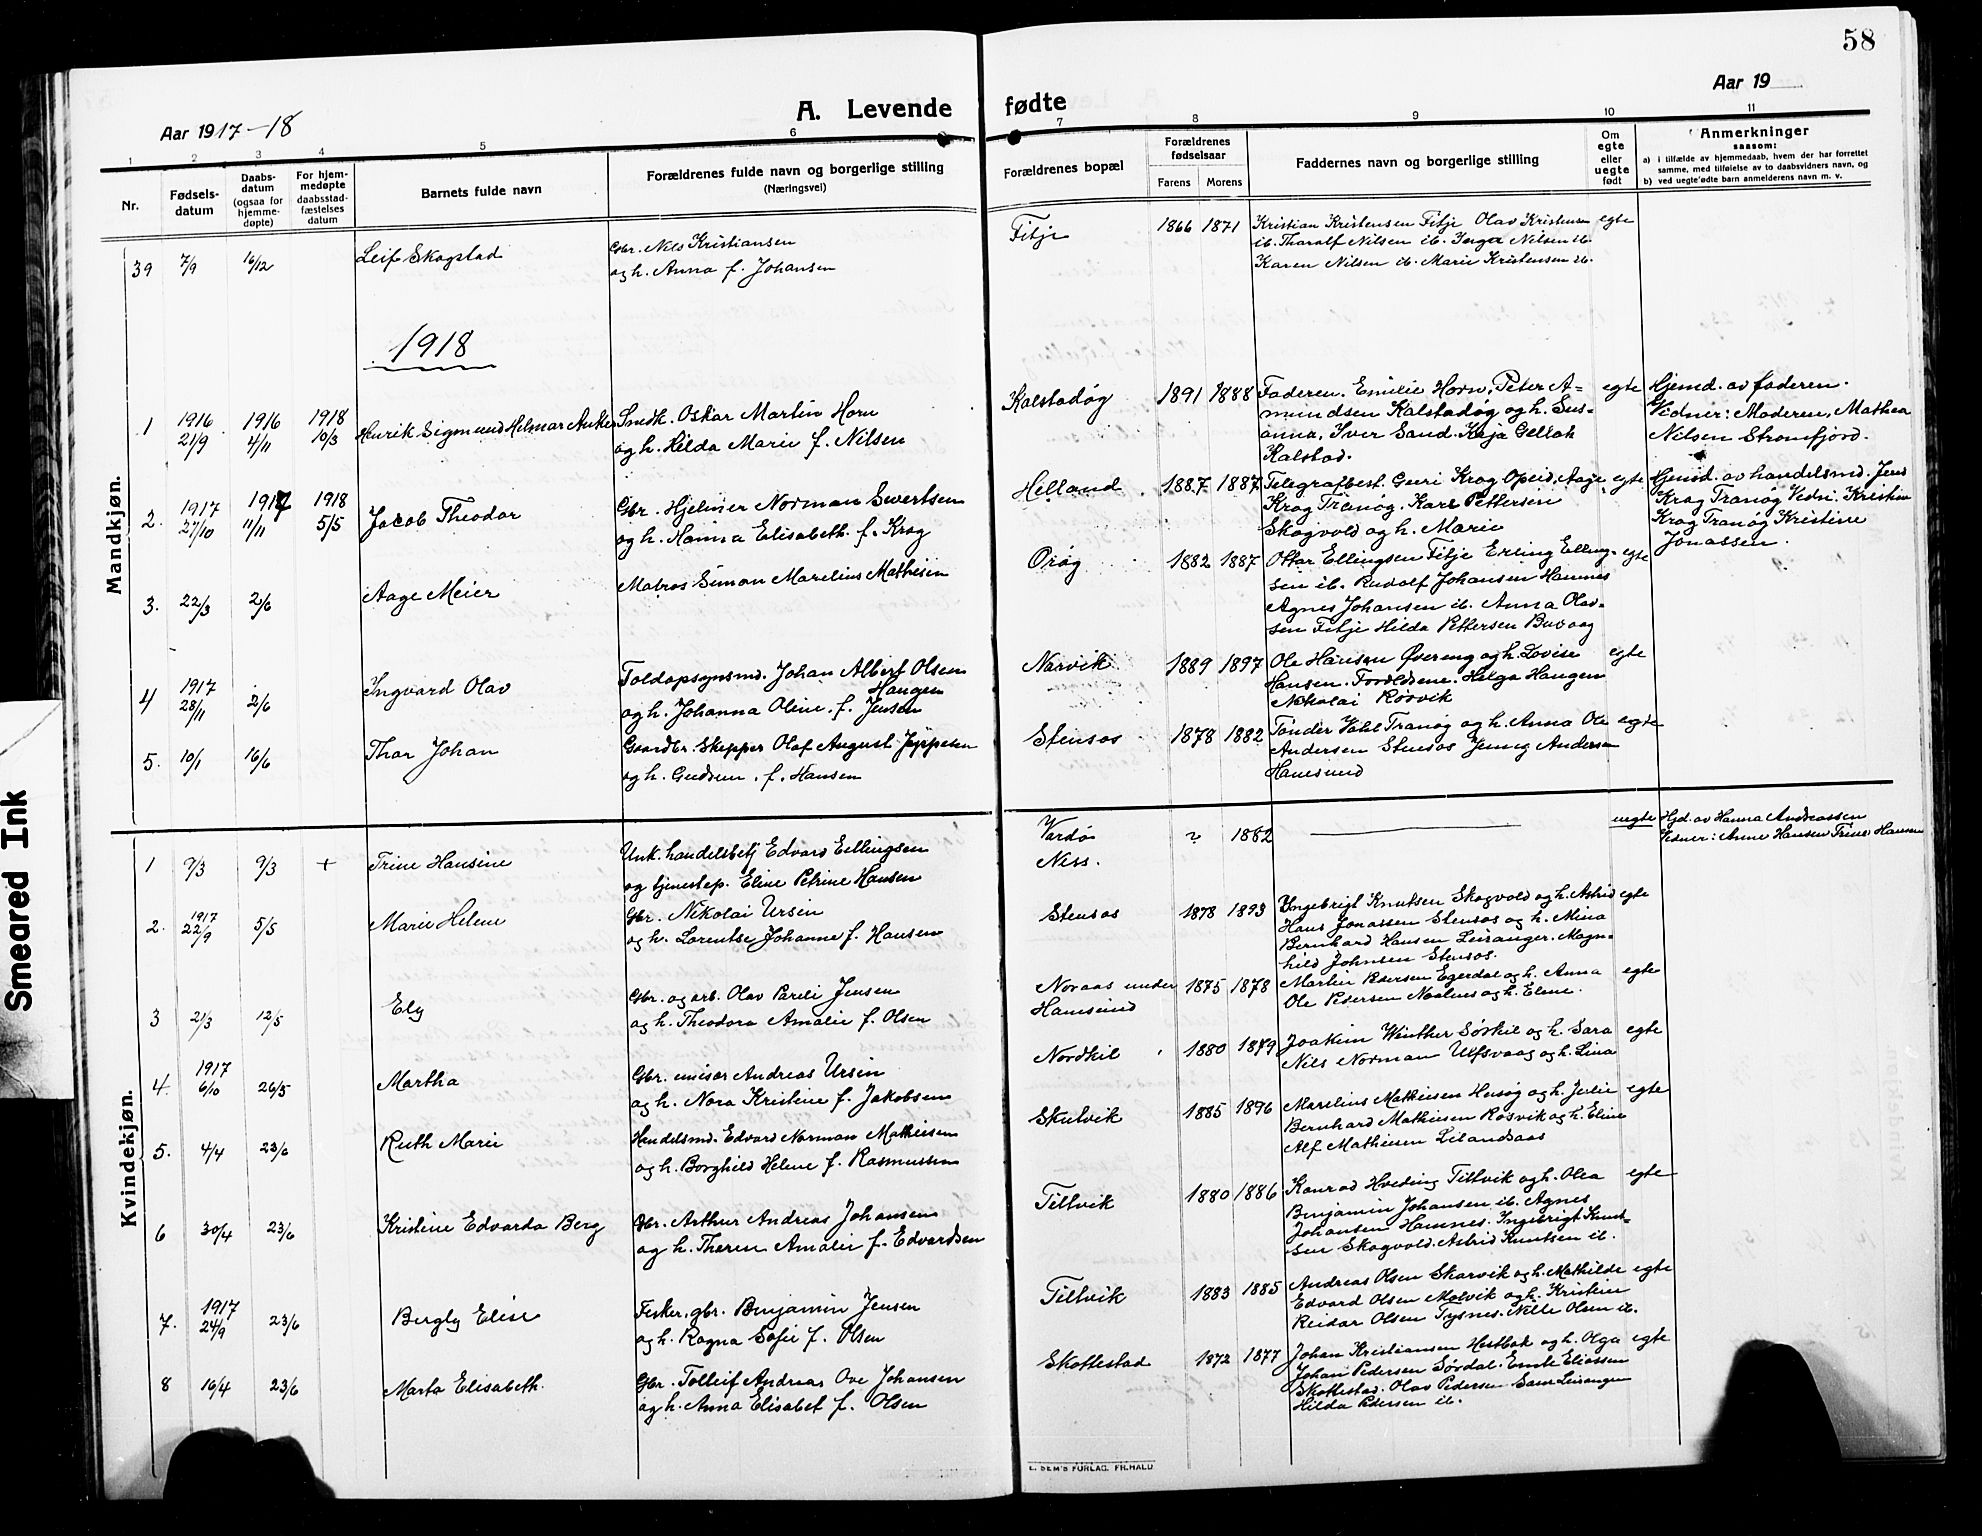 58
Aar 1917-18
A. Levende fødte
Aar 19
1 2 3 4 5 6 7 8 9 10 11
Nr.
Fødsels-
datum
Daabs-
datum
(ogsaa for
hjemme-
døpte)
For hjem-
medøpte
daabsstad-
fæstelses
datum
Barnets fulde navn
Forældrenes fulde navn og borgerlige stilling
(Næringsvei)
Forældrenes bopæl
Forældrenes
fødselsaar
Farens Morens
Faddernes navn og borgerlige stilling
Om
egte
eller
uegte
født
Anmerkninger
saasom:
a) i tilfælde av hjemmedaab, hvem der har forrettet
samme, med tilføielse av to daabsvidners navn, og
b) ved uegte fødte barn anmelderens navn m. v.
Mandkjøn.
39 7/9 16/12 Leif Skogstad
Gbr. Nils Kristiansen
og h. Anna f. Johansen
Fitje 1866 1871
Kristian Kristensen Fitje Olav Kristensen
ib. Tharalf Nilsen ib. Inga Nilsen ib.
Karen Nilsen ib. Marie Kristensen ib.
egte
1918
1 1916 21/9 1916 4/11 1918 10/3 Henrik Sigmund Helmar Anker
Smdk. Oskar Martin Horn
og h. Hilda Marie f. Nilsen
Kalstadøg 1891 1888
Faderen. Emilie Horn, Peter A-
mundsen Kalstadøg og h. Sus-
anna, Iver Sand. Kaja
Kalstad.
egte
Hjemd. av faderen.
Vidner: Moderen, Mathea
Nilsen Strømfjord.
2. 1917 27/10 1917 11/11 1918 5/5 Jacob Theodor
Gbr. Hjelmer Norman Sivertsen
og h. Hanna Elisabeth f. Krog
Helland 1887 1887
Telegrafbest. Guri Krog Opeid, Aage
Krog Tranøg. Karl Pettersen
Skogvold og h. Marie
egte
Hjemd. av handelsmd. Jens
Krog Tranøg Vedn. Kristine
Krog Tranøg Kristine
Jonassen.
3. 22/3 2/6 Aage Meier
Matros Simon Marelius Mathisen
Orøg 1882 1887
Ottar Ellingsen Fitje Erling Elling-
sen ib. Rudolf Johansen Hamnes
Agnes Johansen ib. Anna Olav-
sen Fitje Hilda Pettersen Buvaag
egte
4 1917 28/11 2/6 Ingvard Olav
Toldopsynsmd. Johan Albert Olsen
Haugen
og h. Johanna Oline f. Jensen
Narvik 1889 1897
Ole Hansen Øvereng og h. Lovise
Hansen. Forældrene. Helga Haugen
Nikolai Rørvik
egte
5. 10/1 16/6 Thor Johan
Gaardbr. Skipper Olaf August Jeppesen
og h. Gudrun f. Hansen
Stensos 1878 1882
Tønder Vahl Tranøg og h. Anna Ole
Andersen Stensos Jenny Andersen
Hamsund
egte
Kvindekjøn.
1 9/3 9/3 + Trine Hansine
Unk. handelsbetj Edvard Ellingsen
og tjenestep. Eline Petrine Hansen
Vardø
Ness.
? 1882
uegte
Hjd. av Hanna Andreassen
Vedner: Anne Hansen Trine Hansen
2. 1917 22/9 5/5 Marie Helene
Gbr. Nikolai Ursin
og h. Lorentse Johanne f. Hansen
Stensos 1878 1893
Ingebrigt Knutsen Skogvold og h. Astrid
Hans Jonassen Stensos og h. Mina
Bernhard Hansen Leiranger. Magn-
hild Johnsen Stensos.
egte
3 21/3 12/5 Ely
Gbr. og arb. Olav Pareli Jensen
og h. Theodora Amalie f. Olsen
Noraas under
Hamsund
1875 1878
Martin Pedersen Egerdal og h. Anna
Ole Pedersen og h. Eline.
egte
4. 1917 6/10 26/5 Martha
Gbr. Andreas Ursin
og h. Nora Kristine f. Jakobsen
Nordkil 1880 1879
Joakim Winther Sørkil og h. Sara
Nils Norman Ulfsvaag og h. Lina
egte
5. 4/4 23/6 Ruth Marie
Handelsmd. Edvard Norman Mathisen
og h. Borghild Helene f. Rasmussen
Skutvik 1885 1896
Marelius Mathisen og h. Julie
Bernhard Mathisen Røsvik og h. Eline
Alf Mathisen Lilandsaas
egte
6 30/4 23/6 Kristine Edvarda Berg
Gbr. Arthur Andreas Johansen
og h. Therese Amalie f. Edvardsen
Tiltvik 1880 1886
Konrad Hveding Tiltvik og h. Olea
Benjamin Johansen ib. Agnes
Johansen Hamnes. Ingebrigt Knut-
sen Skogvold. Astrid Knutsen ib.
egte
7. 1917 24/9 23/6 Bergly Elise
Fisker, gbr. Benjamin Jensen
og h. Ragna Sofie f. Olsen
Tiltvik 1883 1885
Andreas Olsen Skarvik og h. Mathilde
Edvard Olsen Molvik og h. Kristine
Reidar Olsen Tysnes. Nelle Olsen ib.
egte
8 16/4 23/6 Marta Elisabeth.
Gbr. Tolleif Andreas Ove Johansen
og h. Anna Elisabet f. Olsen
Skottestad 1872 1877
Johan Kristiansen Hestbak og h. Olga
Johan Pedersen Sørdal. Emte Eliassen
Skottestad. Olav Pedersen Leiranger
Hilda Pedersen ib.
egte
E. SEM'S FORLAG. FR.HALD
Smeared Ink